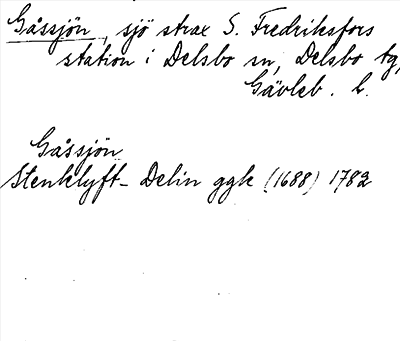 Gåssjön, sjö strax S. Fredriksfors
station i Delsbo sn, Delsbo tg,
Gävleb. l.
Gåssjön
Stenklyft- Delin ggk (1688) 1782